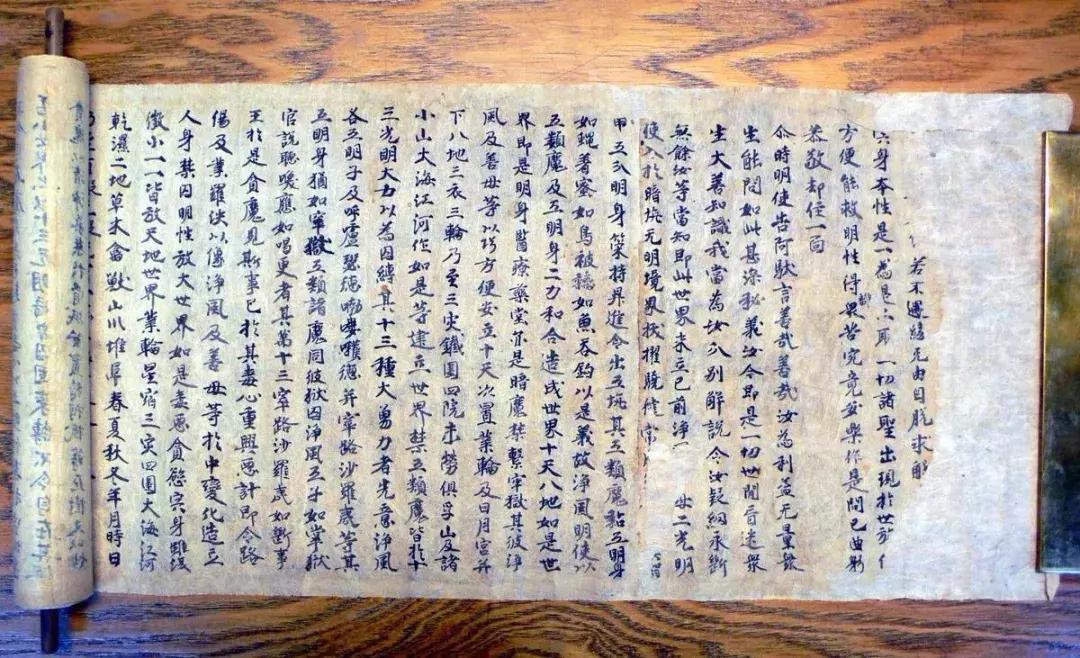 若不遇緣无由自脫求解
宍身本性是一為是二耶一切諸聖出現於世施
方便能救明性得離眾苦究竟安樂作是問已曲躬
恭敬却住一面
尒時明使告阿馱言善哉善哉汝為利益无量眾
生能問如此甚深秘義汝今即是一切世間盲迷眾
生大善知識我當為汝分別解說令汝疑網永斷
無餘汝等當知即此世界未立已前淨 母二光明
使入於暗坑无明境界拔擢驍健常
甲五分明身策持昇進令出五坑其五類魔黏五明身
如蠅著蜜如鳥被黐如魚吞鉤以是義故淨風明使以
五類魔及五明身二力和合造成世界十天八地如是世
界即是明身醫療藥堂亦是暗魔禁繫牢獄其彼淨
風及善母等以巧方便安立十天次置業輪及日月宮并
下八地三衣三輪乃至三灾鐵圍四院未勞俱孚山及諸
小山大海江河作如是等建立世界禁五類魔皆於十
三光明大力以為囚縛其十三種大勇力者先意淨風
各五明子及呼嚧瑟德嘞嚤㘕德并窣路沙羅夷等其
五明身猶如牢獄五類諸魔同彼獄囚淨風五子如掌獄
官說聽喚應如喝更者其第十三窣路沙羅夷如斷事
王於是貪魔見斯事已於其毒心重興惡計即令路
傷及業羅泱以像淨風及善母等於中變化造立
人身禁囚明性放大世界如是毒惡貪慾宍身雖復
微小一一皆放天地世界業輪星宿三灾四圍大海江河
乾濕二地草木禽獸山川堆阜春夏秋冬年月時日